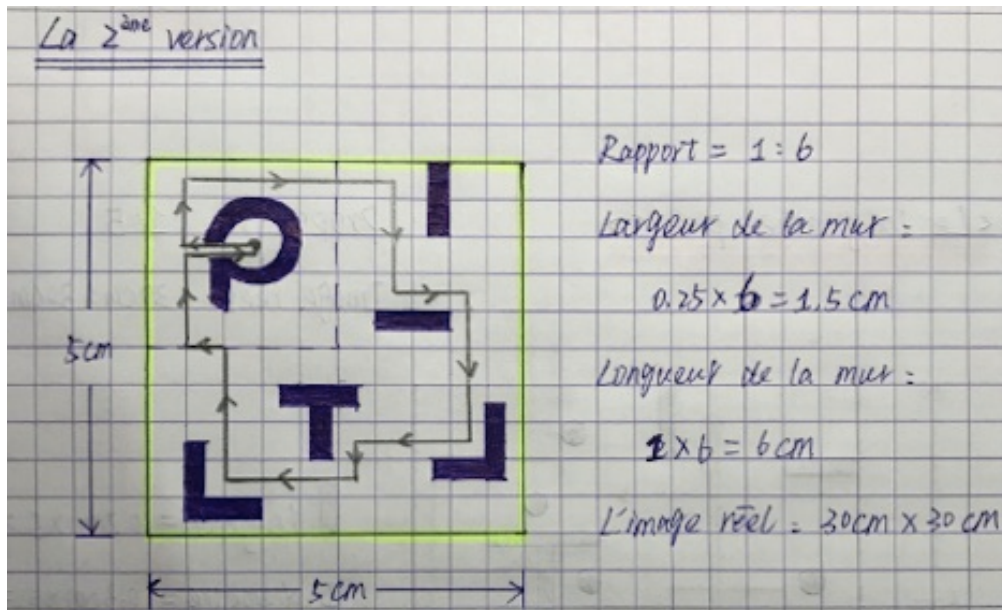 La 2ème version
Rapport = 1 : 6
Largeur de la mur :
0.25 × 6 = 1.5 cm
5cm
Longueur de la mur :
1 × 6 = 6 cm
L'image réel = 30cm × 30 cm
5cm